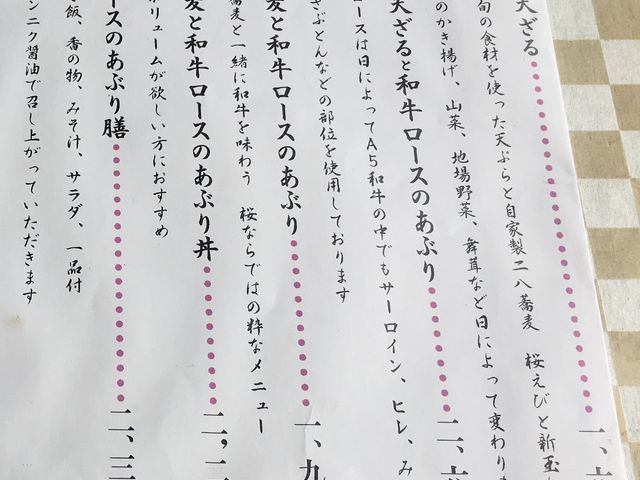 天ざる
一、
旬の食材を使った天ぷらと自家製二八蕎麦 桜えびと新玉
のかき揚げ、山菜、地場野菜、舞茸など日によって変わりま
天ざると和牛ロースのあぶり
二、
ロースは日によってA5和牛の中でもサーロイン、ヒレ、み
ざぶとんなどの部位を使用しております
麦と和牛ロースのあぶり
一、九
蕎麦と一緒に和牛を味わう 桜ならではの粋なメニュー
麦と和牛ロースのあぶり丼
二、二
ボリュームが欲しい方におすすめ
ースのあぶり膳
二、三
飯、香の物、みそ汁、サラダ、一品付
ンニク醤油で召し上がっていただきます